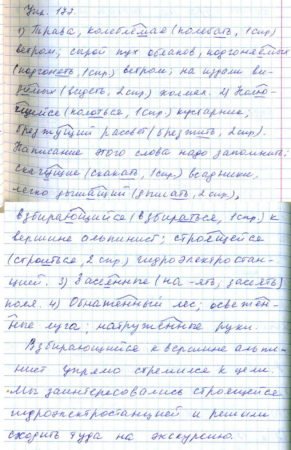 Упр. 177
1) Трава, колеблемая (полоть, 1 спр)
ветром; сырой пух облаков, подгоняемых
(подгонять, 1 спр.) ветром; на издали ви-
димых (видеть, 2 спр) холмах. 2)
щийся (колоться, 1 спр.) кустарник;
брезжущий рассвет (брезжить, 2 спр).
Написание этого слова надо запомнить;
скачущие (скакать, 1 спр.) всадники,
легко дышащий (дышать, 2 спр),
взбирающийся (взбираться, 1 спр) к
вершине альпинист; строящейся
(строиться, 2 спр) гидроэлектростан-
цией. 3) Засеянные (на -ять, засеять)
поля. 4) Обнажённый лес; освежён-
ные луга; натруженные руки.
Взбирающийся к вершине альпи-
нист упрямо стремился к цели.
Мы заинтересовались строящейся
гидроэлектростанцией и решили
сходить туда на экскурсию.